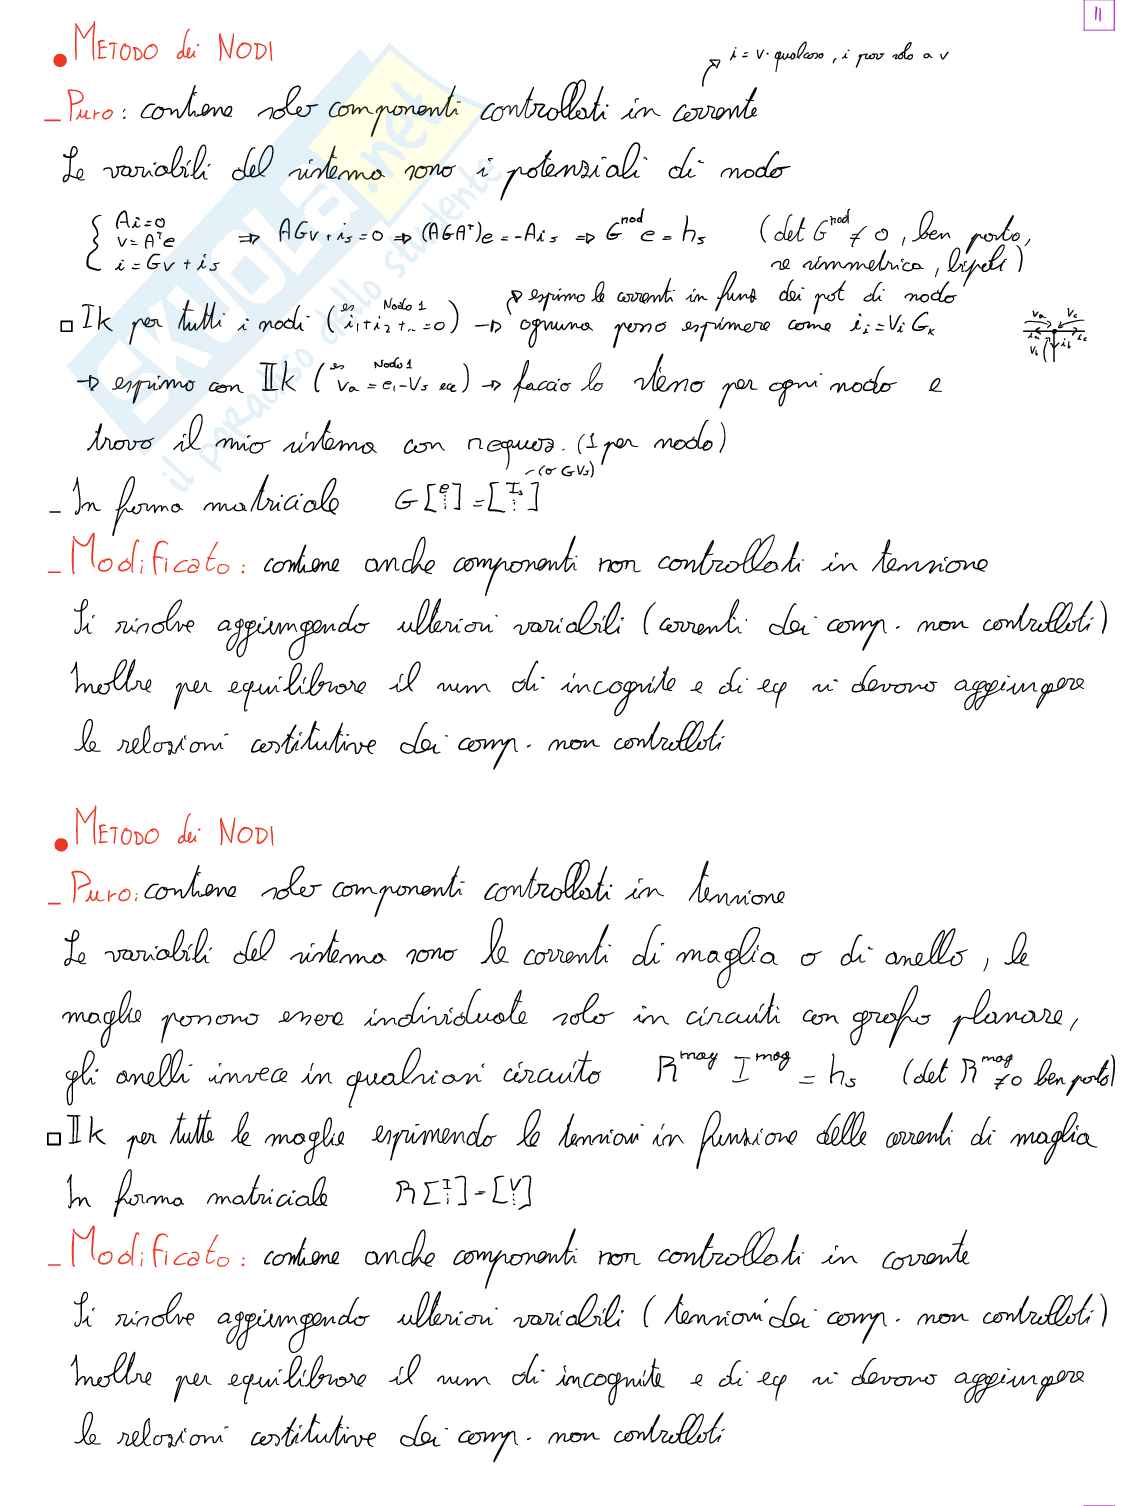 11
• METODO dei NODI
i = v · qualcosa, i prov solo a v
- Puro: contiene solo componenti controllati in corrente
Le variabili del sistema sono i potenziali di nodo
{ Ai=0
v=Aᵀe
i=Gv+is
⇒ AGv+is=0 ⇒ (AGAᵀ)e=-Ais ⇒ Gⁿᵒᵈ e = hs (det Gⁿᵒᵈ ≠ 0, ben posto,
se simmetrica, bipoli)
esprimo le correnti in funz dei pot di nodo
□ IK per tutti i nodi (es Nodo 1 i1+i2+...=0) → ognuna posso esprimere come ii=ViGk
→ esprimo con IIK (es Nodo 1 va=e1-vs ecc) → faccio lo stesso per ogni nodo e
trovo il mio sistema con n equaz. (1 per nodo)
- In forma matriciale G[e⋮]=[Is⋮] (o GVs)
- Modificato: contiene anche componenti non controllati in tensione
Si risolve aggiungendo ulteriori variabili (correnti dei comp. non controllati)
Inoltre per equilibrare il num di incognite e di eq si devono aggiungere
le relazioni costitutive dei comp. non controllati
• METODO dei NODI
- Puro: contiene solo componenti controllati in tensione
Le variabili del sistema sono le correnti di maglia o di anello, le
maglie possono essere individuate solo in circuiti con grafo planare,
gli anelli invece in qualsiasi circuito Rᵐᵃᵍ Iᵐᵃᵍ = hs (det Rᵐᵃᵍ ≠0 ben posto)
□ IIK per tutte le maglie esprimendo le tensioni in funzione delle correnti di maglia
In forma matriciale R[I⋮]=[V⋮]
- Modificato: contiene anche componenti non controllati in corrente
Si risolve aggiungendo ulteriori variabili (tensioni dei comp. non controllati)
Inoltre per equilibrare il num di incognite e di eq si devono aggiungere
le relazioni costitutive dei comp. non controllati
SKUOLA.net
il paradiso dello studente